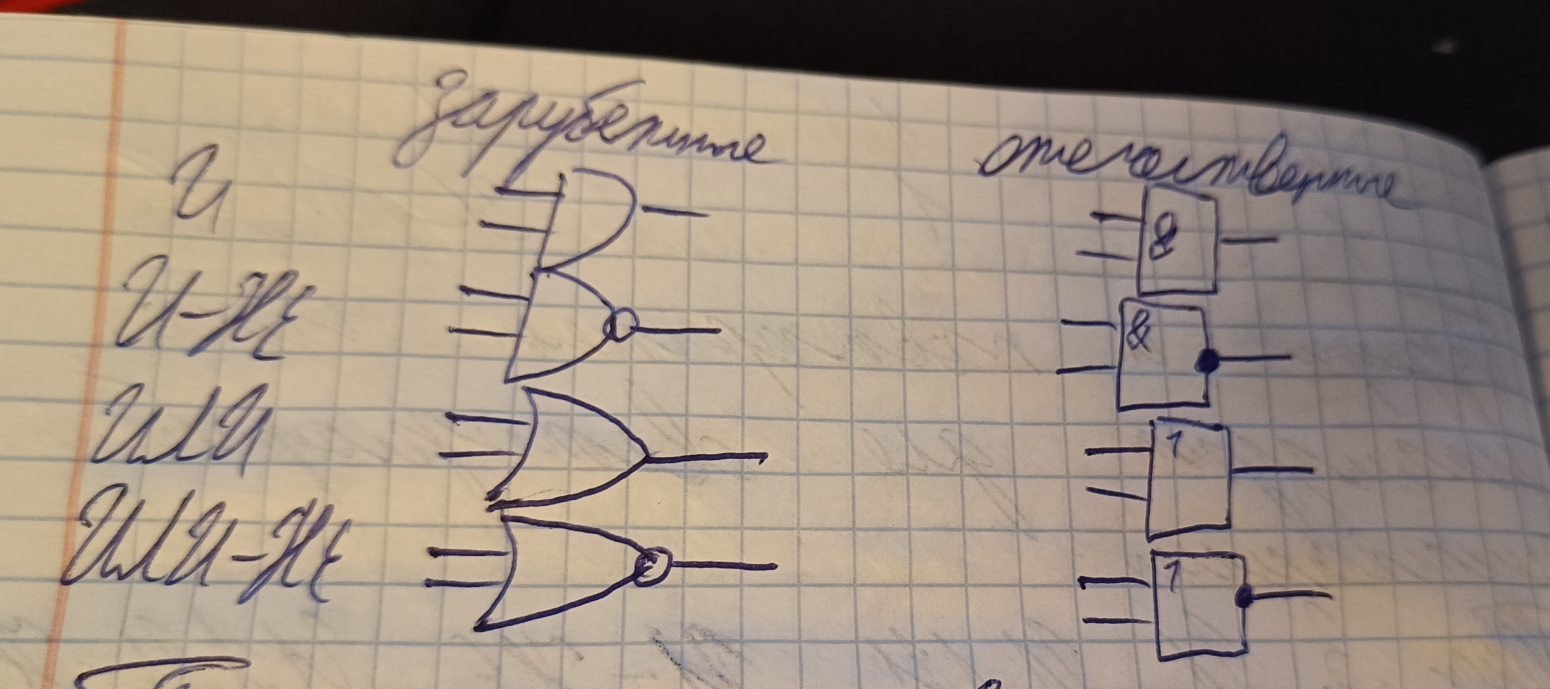 зарубежные отечественные
И &
И-НЕ &
ИЛИ 1
ИЛИ-НЕ 1